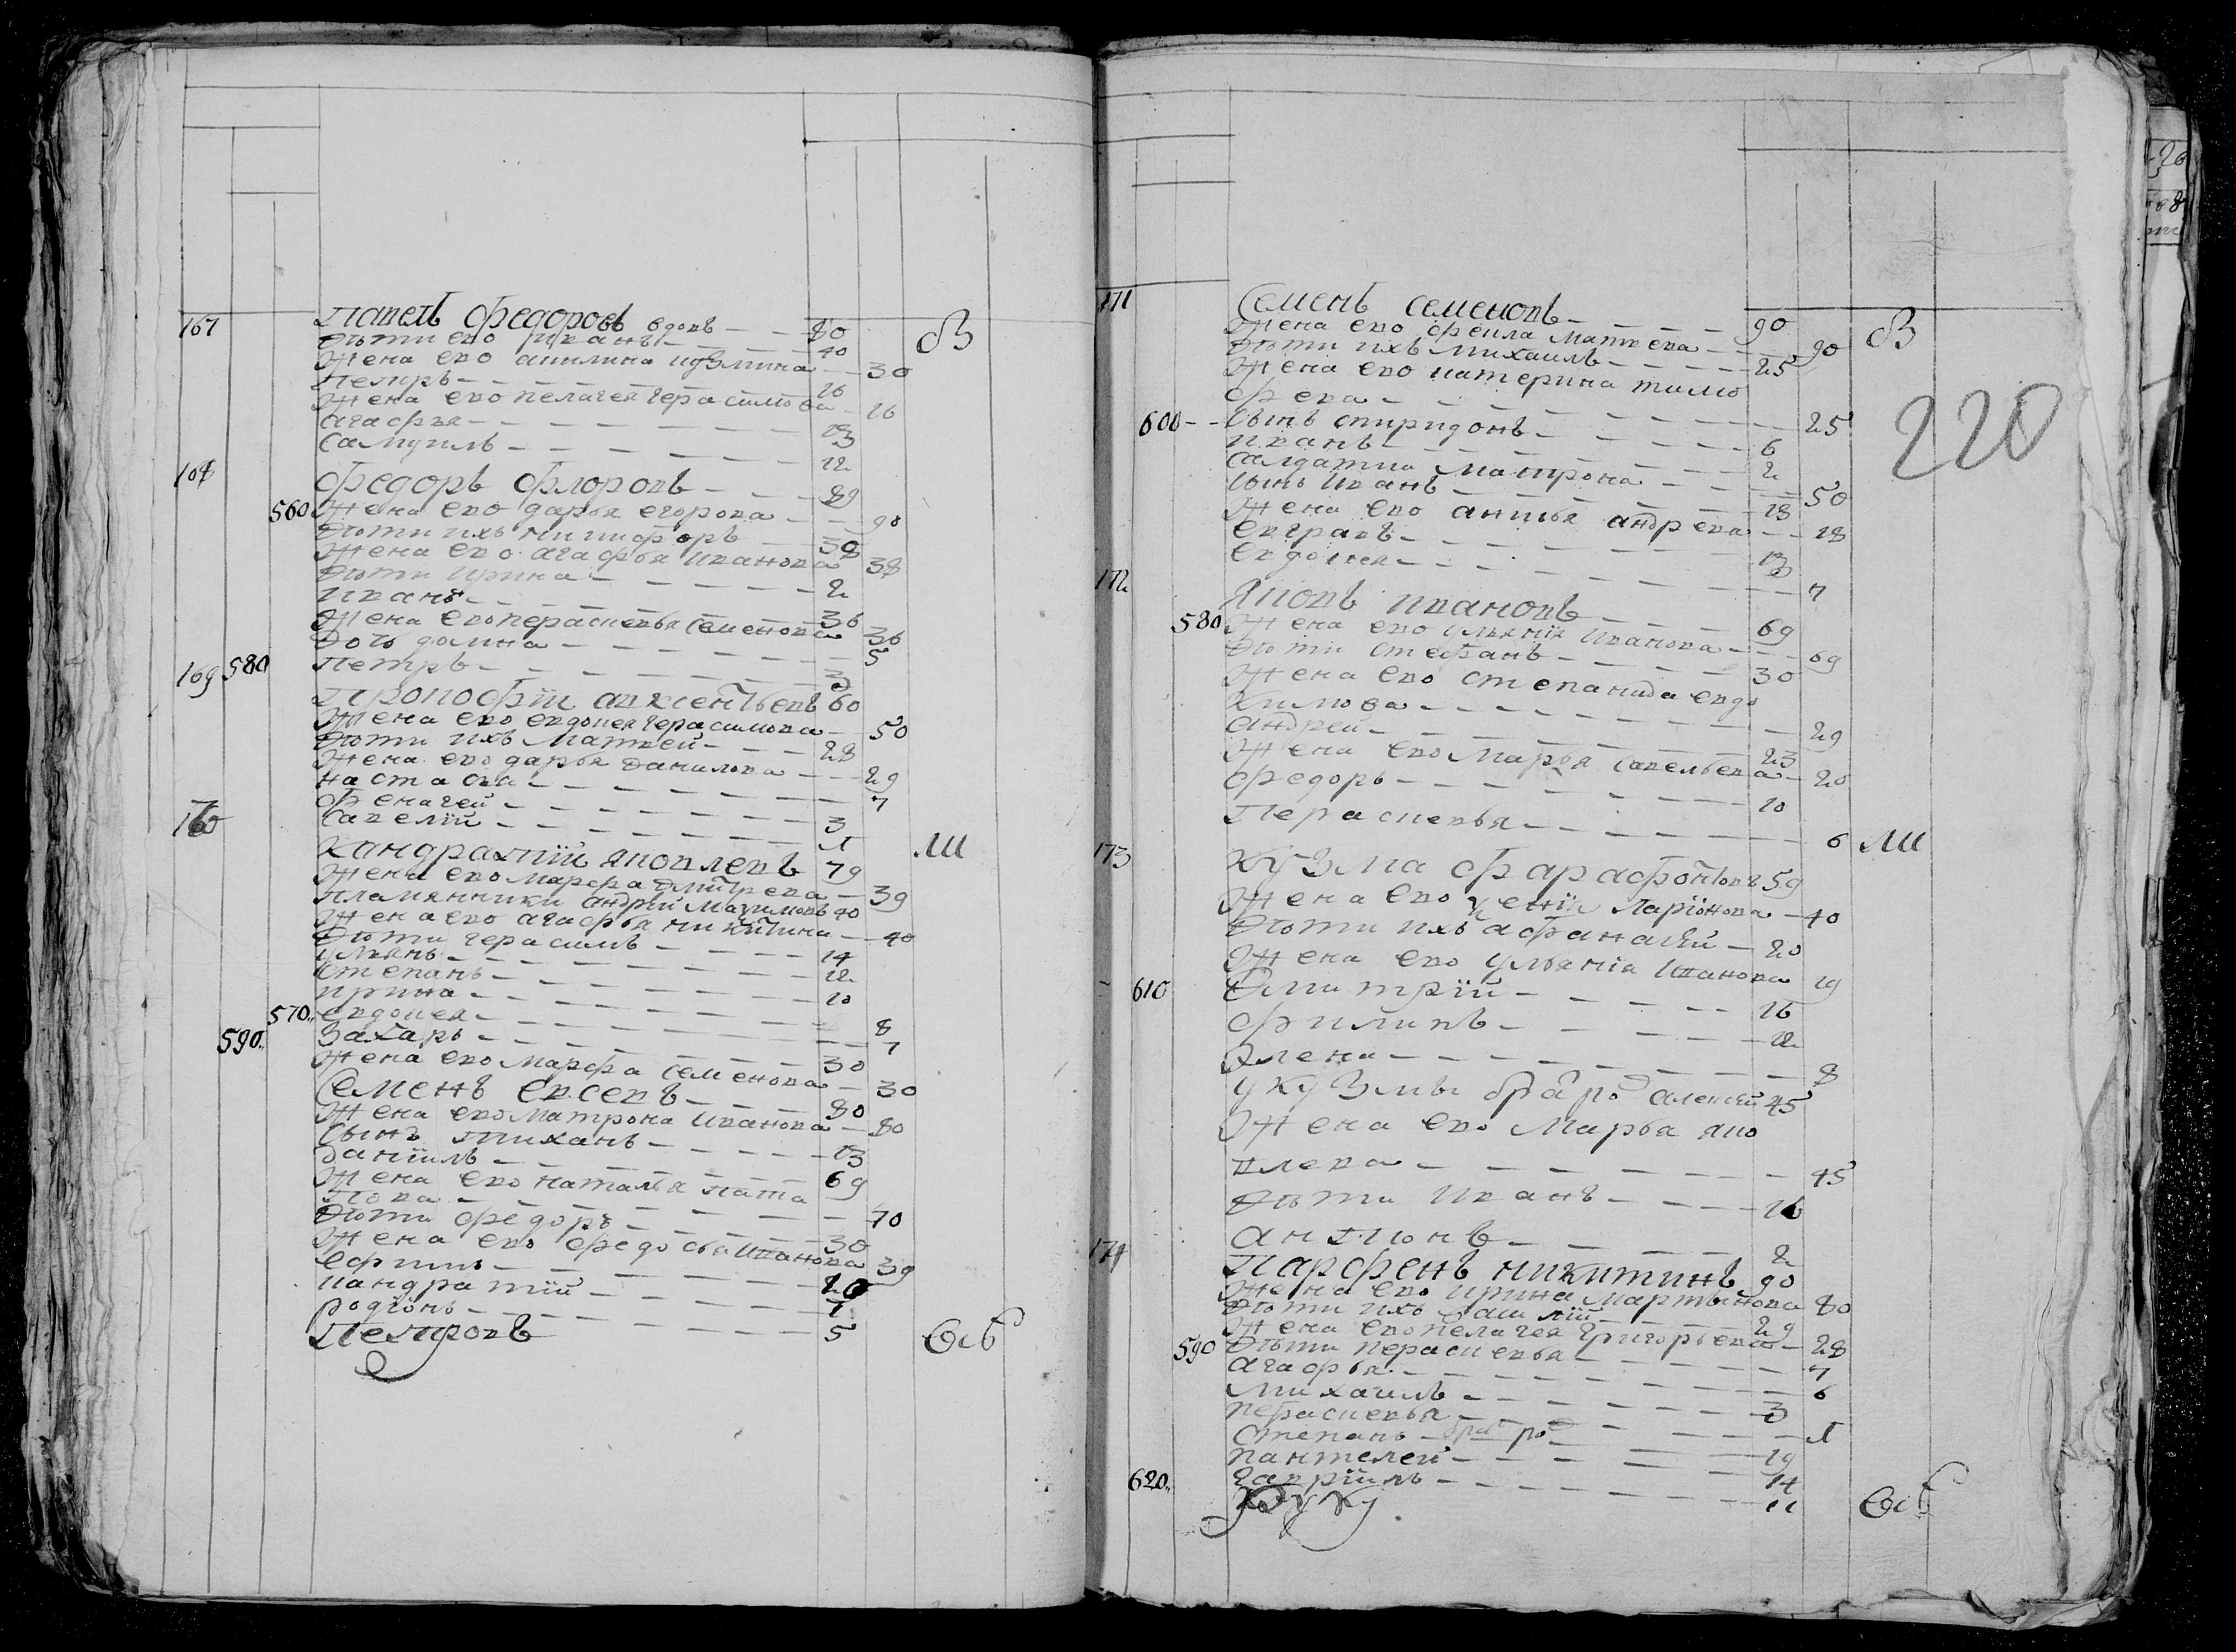 167 Павелъ Федоровъ вдовъ — — 80 В
Дѣти ево Иванъ — — — 40
Жена ево акилина кузмина — 30
Петръ — — — — 26
Жена ево пелагея герасимова — 26
агафья — — — — 13
самуилъ — — — — 12
168 Федоръ Флоровъ — — — 89
560 Жена ево дарья егорова — — — 90
Дѣти ихъ никифоръ — 38
Жена ево агафья иванова 38
Дѣти ирина — — — — 2
иванъ — — — — 36
Жена ево перасковья семенова 36
Дочь домна — — — — 5
169 580 Петръ — — — — 3
Прокофїй авксентьевъ 60
Жена ево евдокея герасимова — 50
Дѣти ихъ Матвей — — — 28
Жена ево дарья данилова — — — 29
настасия — — — — 7
Фенагей — — — — 3
170 савелїй — — — — 1
Кандратїй яковлевъ 79 Ш
Жена ево марфа дмитрева — 39
Пламянники андрей Мазимовъ 40
Жена ево агафья никитина — 40
Дѣти герасимъ — — — 14
улянъ — — — — 12
степанъ — — — — 10
ирина — — — —
570 евдокея — — — — 8
590 Захаръ — — — — 7
30
Жена ево марфа семенова — 30
Семенъ евсевъ — — — 80
Жена ево матрона иванова — 80
Сынъ тиханъ — — — — 13
Данїилъ — — — — 69
Жена ево наталья ната
това — — — — 70
Дѣти федоръ — — — — 30
Жена ево федосья иванова 39
ефимъ — — — — 20
кандратїй — — — — 7
родїонъ — — — — 5
Петровъ
171 Семенъ семеновъ — — — 90 В
Жена ево фекла матвева — — 90
Дѣти ихъ михаилъ — — — 25
Жена ево катерина тимо
фева — — — — 25
600 — Сынъ спиридонъ — — — 6
иванъ — — — — 2
салдатка матрона — — — 50
Сынъ иванъ — — — — 18
Жена ево анисья андрева — — 18
евграфъ — — — — 13
евдокея — — — — 7
220
172 Яковъ ивановъ — — — 69
580 Жена ево ульянїя иванова — — 69
Дѣти степанъ — — — — 30
Жена ево степанида евдо
кимова — — — — 29
андрей — — — — 23
Жена ево марья савельева — 20
федоръ — — — — 10
Перасковья — — — — 6
173 Кузма фарафонтовъ 59 Ш
Жена ево ксенїя ларїонова — 40
Дѣти ихъ афанасїй — 20
Жена ево ульянїя иванова 19
610 Дмитрїй — — — — 16
филипъ — — — — 12
Элена — — — — 8
у кузмы братъ род алексей 45
Жена ево марья яко
влева — — — — 45
Дѣти иванъ — — — — 16
антипъ — — — — 2
174 Парфенъ никитинъ 90
Жена ево ирина мартынова 80
Дѣти ихъ василїй — — — 29
Жена ево пелагея григорьева — 28
590 Дѣти перасковья — — — — 7
агафья — — — — 6
михаилъ — — — — 3
перасковья — — — — 1
степанъ — братъ род — 19
пантелей — — — — 14
620 гаврїилъ — — — — 11